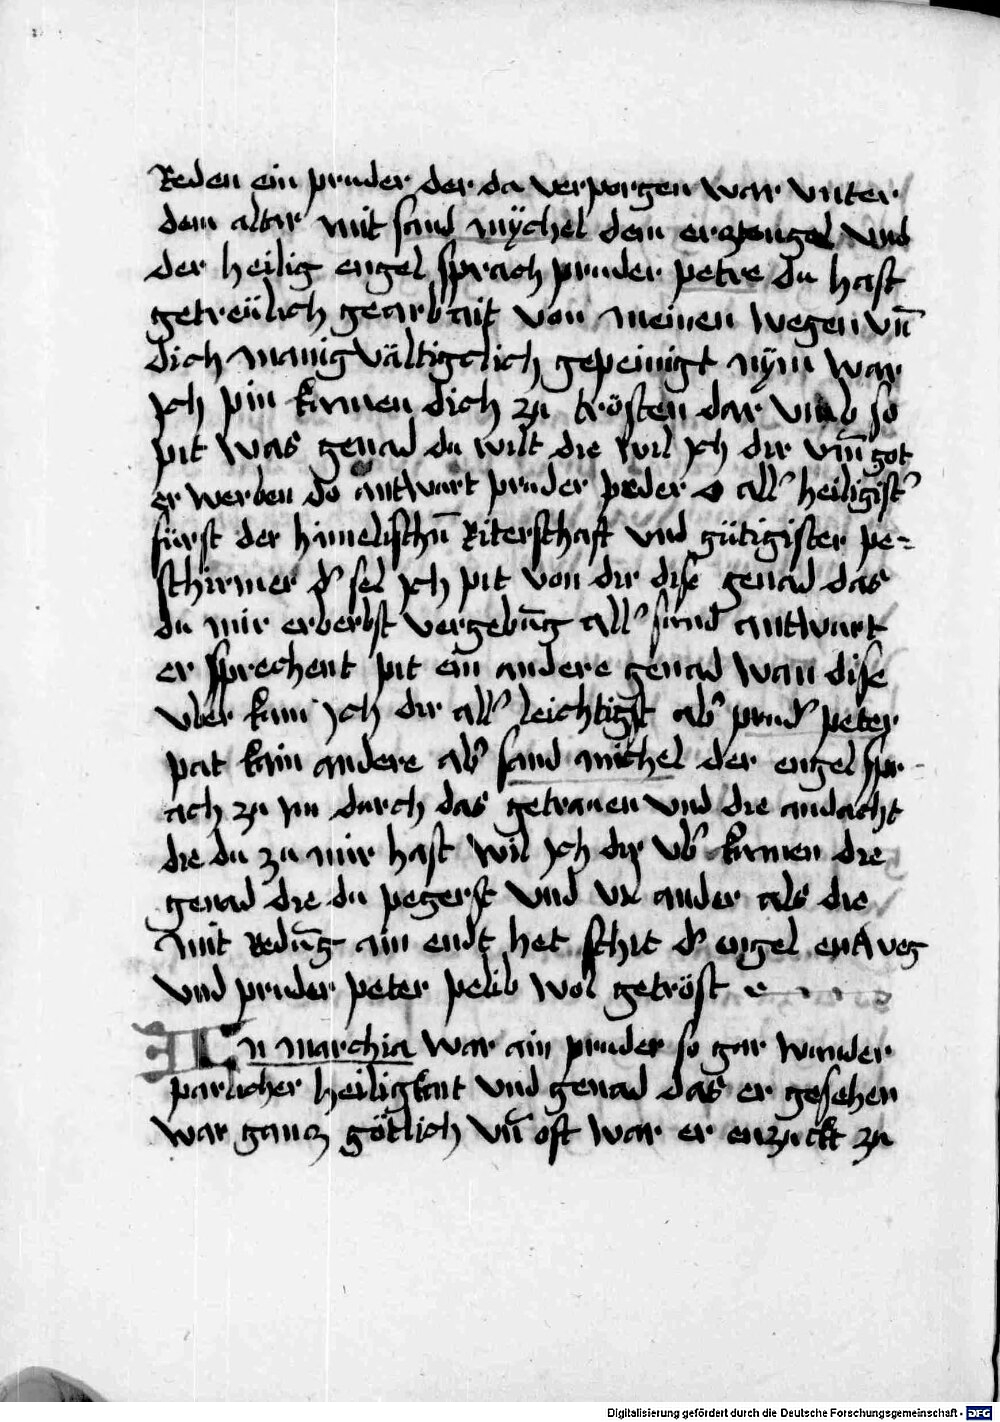 Reden ein pruder der da verporgen war vnter
dem altar mit sand mÿchel dem erczengel vnd
der heilig engel sprach pruder petre du hast
getreülich gearbait von meinen wegen vn̄
dich manigvältigclich gepeinigt nÿm war
jch pin kumen dich zu trösten dar vmb so
pit was genad du wilt die wil jch dir vm̄ got
er werben do antwurt pruder peder o all᾽ heiligist᾽
fürst der himelischn̄ Riterschaft vnd gütigister pe-
schirmer d᾽ sel jch pit von dir dise genad das
du mir erberbst vergebūg all᾽ sünd antwurt
er sprechent pit ein andere genad wan dise
vber kum jch dir all᾽ leichtigst ab᾽ prud᾽ peter
pat kain andere ab᾽ sand michel der engel spr-
ach zu im durch das getrauen vnd die andacht
die du zu mir hast wil jch dir vb᾽ kumen die
genad die du pegerst vnd vil ander als die
mit Redūg ain endt het schit d᾽ engel entweg
vnd pruder peter pelib wol getröst
In marchia war ain pruder so gar wunder
parlicher heiligkait vnd genad das er gesehen
war gancz götlich vn̄ oft war er enzuckt zu
Digitalisierung gefördert durch die Deutsche Forschungsgemeinschaft - DFG